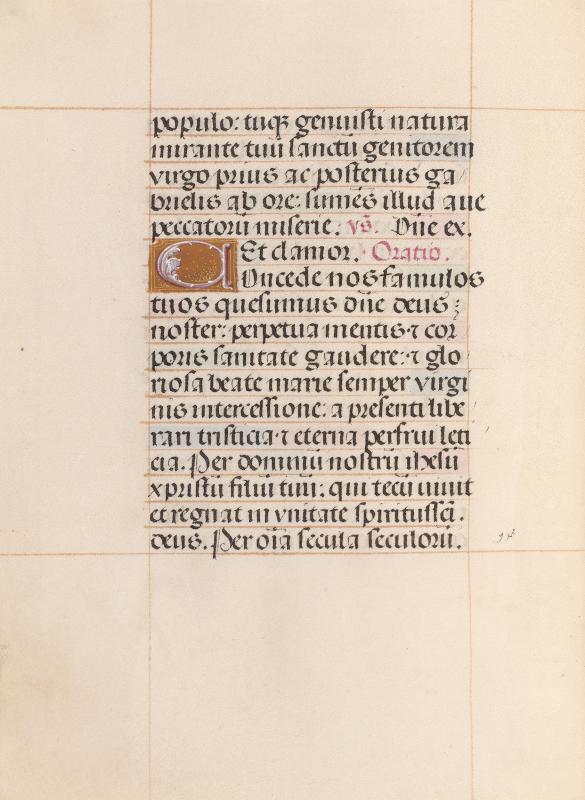 populo: tuq̃ genuisti natura
mirante tuũ sanctũ genitorem
virgo prius ac posterius ga
brielis ab ore: sumẽs illud aue
peccatorũ miserie. vs̃. Dñe ex.
Et clamor. Oratio.
Concede nos famulos
tuos quesumus dñe deus
noster: perpetua mentis ⁊ cor
poris sanitate gaudere: ⁊ glo
riosa beate marie semper virgi
nis intercessione: a presenti libe
rari tristicia ⁊ eterna perfrui leti
cia. Per dominũ nostrũ ihesũ
xpristũ filiũ tuũ: qui tecũ uiuit
et regnat in vnitate spiritussci̇̃.
deus. Per oĩa secula seculorũ.